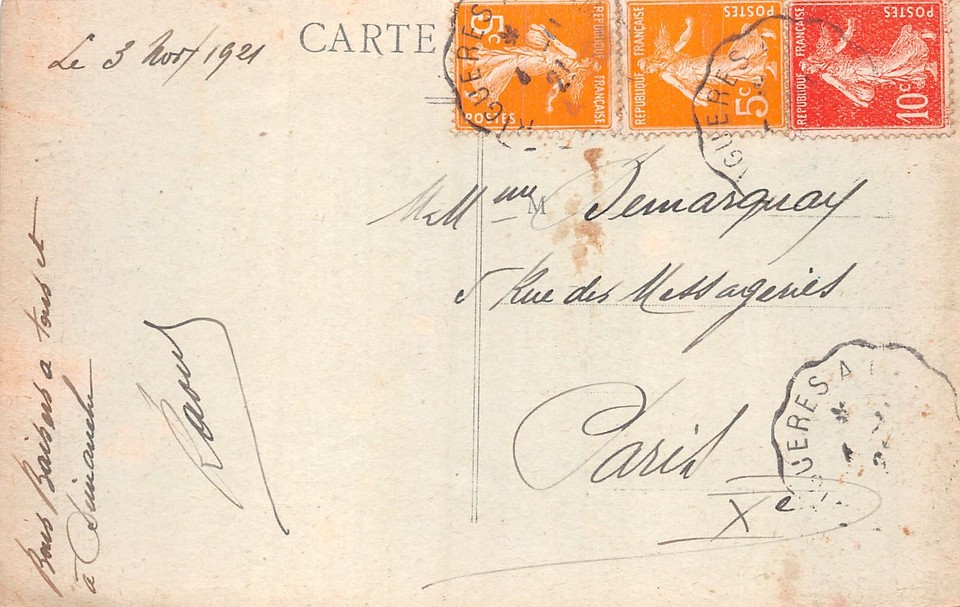 Le 3 Nov/1921
CARTE
5c
RÉPUBLIQUE FRANÇAISE
POSTES
RÉPUBLIQUE FRANÇAISE
POSTES
5c
RÉPUBLIQUE FRANÇAISE
POSTES
10c
GUERES
GUERES
M
Demarquay
5 Rue des Messageries
Paris
Xe
GUERES A
Bons Baisers a tous et
à Dimanche
Raoul